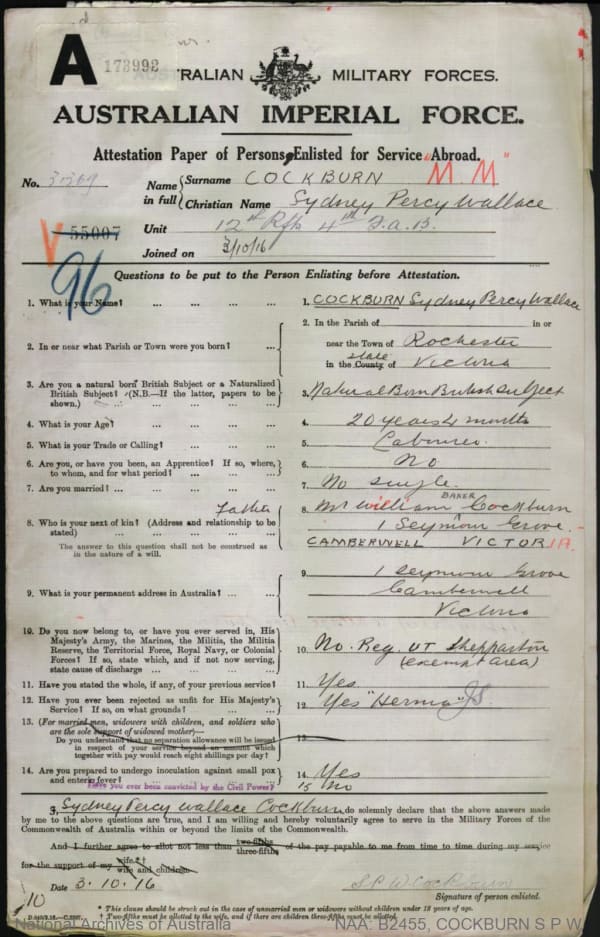 A
173992
TRALIAN MILITARY FORCES.
AUSTRALIAN IMPERIAL FORCE.
Attestation Paper of Persons Enlisted for Service Abroad.
"M.M"
No. 3369
Name in full { Surname COCKBURN
Christian Name Sydney Percy Wallace
V 55007
Unit 12th Rfts 4th F.A.B.
Joined on 3/10/16
96
Questions to be put to the Person Enlisting before Attestation.
1. What is your Name? ... ... ... ... 1. COCKBURN Sydney Percy Wallace
2. In or near what Parish or Town were you born? ... 2. In the Parish of in or
near the Town of Rochester
in the County of state Victoria
3. Are you a natural born British Subject or a Naturalized British Subject? (N.B.—If the latter, papers to be shown.) 3. Natural Born British Subject
4. What is your Age? ... ... ... ... 4. 20 years 4 months
5. What is your Trade or Calling? ... ... ... 5. Labourer.
6. Are you, or have you been, an Apprentice? If so, where, to whom, and for what period? ... ... 6. No
7. Are you married? ... ... ... ... 7. No single.
8. Who is your next of kin? (Address and relationship to be stated) ... ... ... ... Father 8. Mr William BAKER Cockburn
1 Seymour Grove.
CAMBERWELL VICTORIA.
The answer to this question shall not be construed as in the nature of a will.
9. What is your permanent address in Australia? ... ... 9. 1 Seymour Grove
Camberwell
Victoria
10. Do you now belong to, or have you ever served in, His Majesty's Army, the Marines, the Militia, the Militia Reserve, the Territorial Force, Royal Navy, or Colonial Forces? If so, state which, and if not now serving, state cause of discharge ... ... ... 10. No. Reg. UT Shepparton
(exempt area)
11. Have you stated the whole, if any, of your previous service? 11. Yes
12. Have you ever been rejected as unfit for His Majesty's Service? If so, on what grounds? ... ... 12. Yes "Hernia" JS
13. (For married men, widowers with children, and soldiers who are the sole support of widowed mother)—
Do you understand that no separation allowance will be issued in respect of your service beyond an amount which together with pay would reach eight shillings per day? 13.
14. Are you prepared to undergo inoculation against small pox and enteric fever? 14. Yes
Have you ever been convicted by the Civil Power? 15 No
I, Sydney Percy Wallace Cockburn, do solemnly declare that the above answers made
by me to the above questions are true, and I am willing and hereby voluntarily agree to serve in the Military Forces of the
Commonwealth of Australia within or beyond the limits of the Commonwealth.
And I further agree to allot not less than two-fifths three-fifths of the pay payable to me from time to time during my service
for the support of my wife.*† wife and children.
Date 3.10.16 S.P.W. Cockburn
Signature of person enlisted.
10
* This clause should be struck out in the case of unmarried men or widowers without children under 18 years of age.
† Two-fifths must be allotted to the wife, and if there are children three-fifths must be allotted.
National Archives of Australia NAA: B2455, COCKBURN S P W